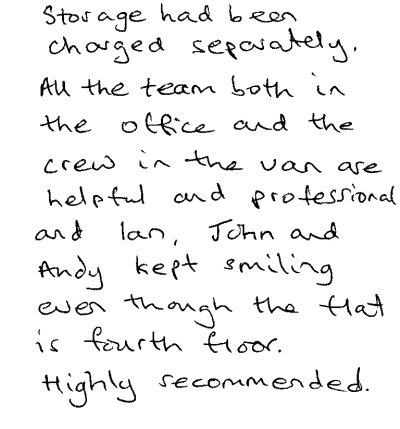 Storage had been
charged separately.
All the team both in
the office and the
crew in the van are
helpful and professional
and Ian, John and
Andy kept smiling
even though the flat
is fourth floor.
Highly recommended.